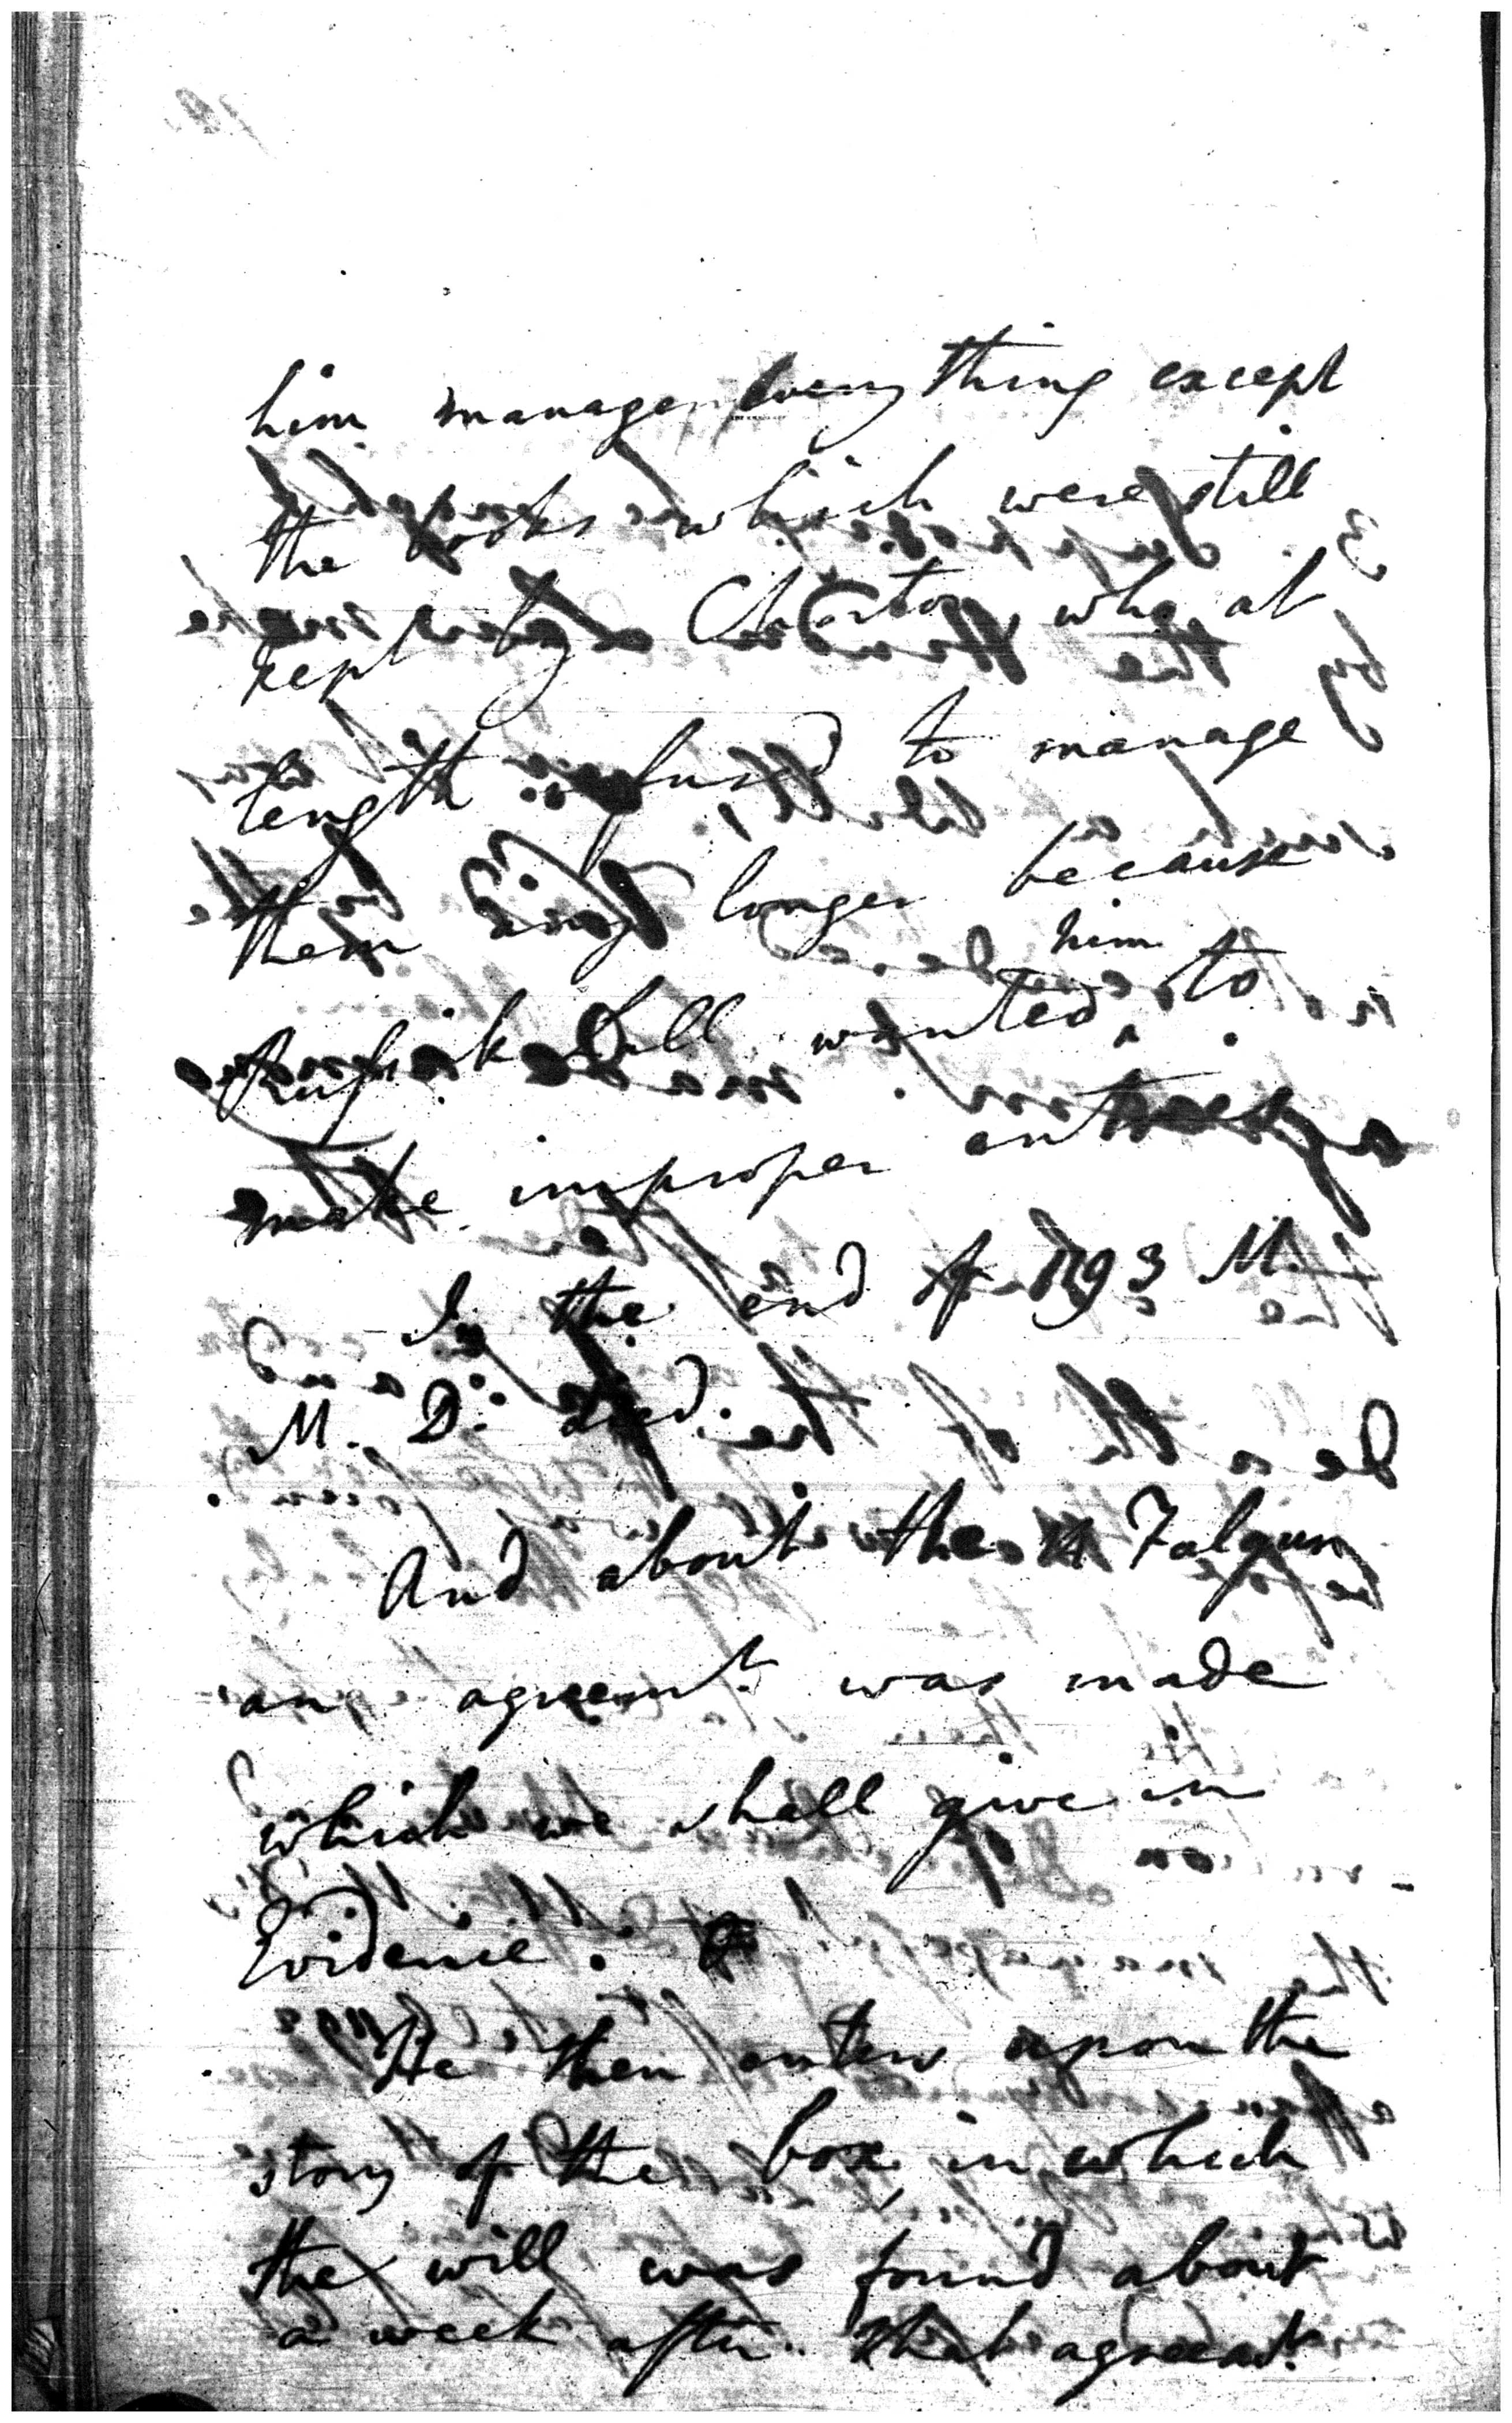 him manage every thing except
the books which were still
kept by Chorton, who, at
length refused to manage
them any longer because
him
Russick Lall wanted ^ to
make improper entrys
In the end of 1793 M.
M. D. died.
And about the 11 Falgun
an agreemt. was made
which we shall give in
Evidence.
He then enters upon the
story of the box in which
the will was found about
a week after that agreemt.